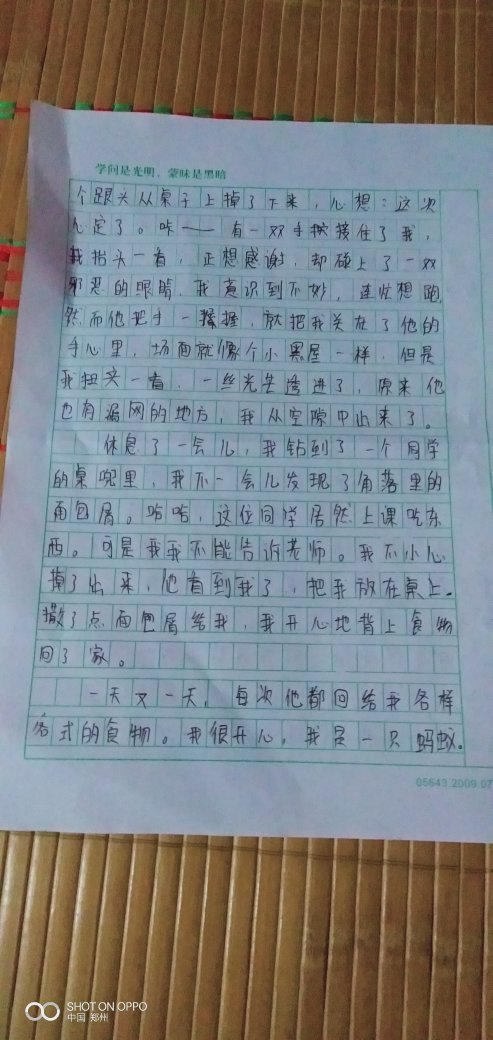 学问是光明、蒙昧是黑暗
个跟头从桌子上掉了下来，心想：这次
完定了。咔——有一双手接住了我，
我抬头一看，正想感谢，却碰上了一双
邪恶的眼睛，我意识到不妙，连忙想跑
然而他把手一握，就把我关在了他的
手心里，场面就像个小黑屋一样，但是
我扭头一看，一丝光芒透进了，原来他
也有漏网的地方，我从空隙中出来了。
休息了一会儿，我钻到了一个同学
的桌兜里，我不一会儿发现了角落里的
面包屑。哈哈，这位同学居然上课吃东
西。可是我我不能告诉老师。我不小心
掉了出来，他看到我了，把我放在桌上。
撒了点面包屑给我，我开心地背上食物
回了家。
一天又一天，每次他都回给我各样
各式的食物。我很开心，我是一只蚂蚁。
05643.2009.07
SHOT ON OPPO
中国 郑州